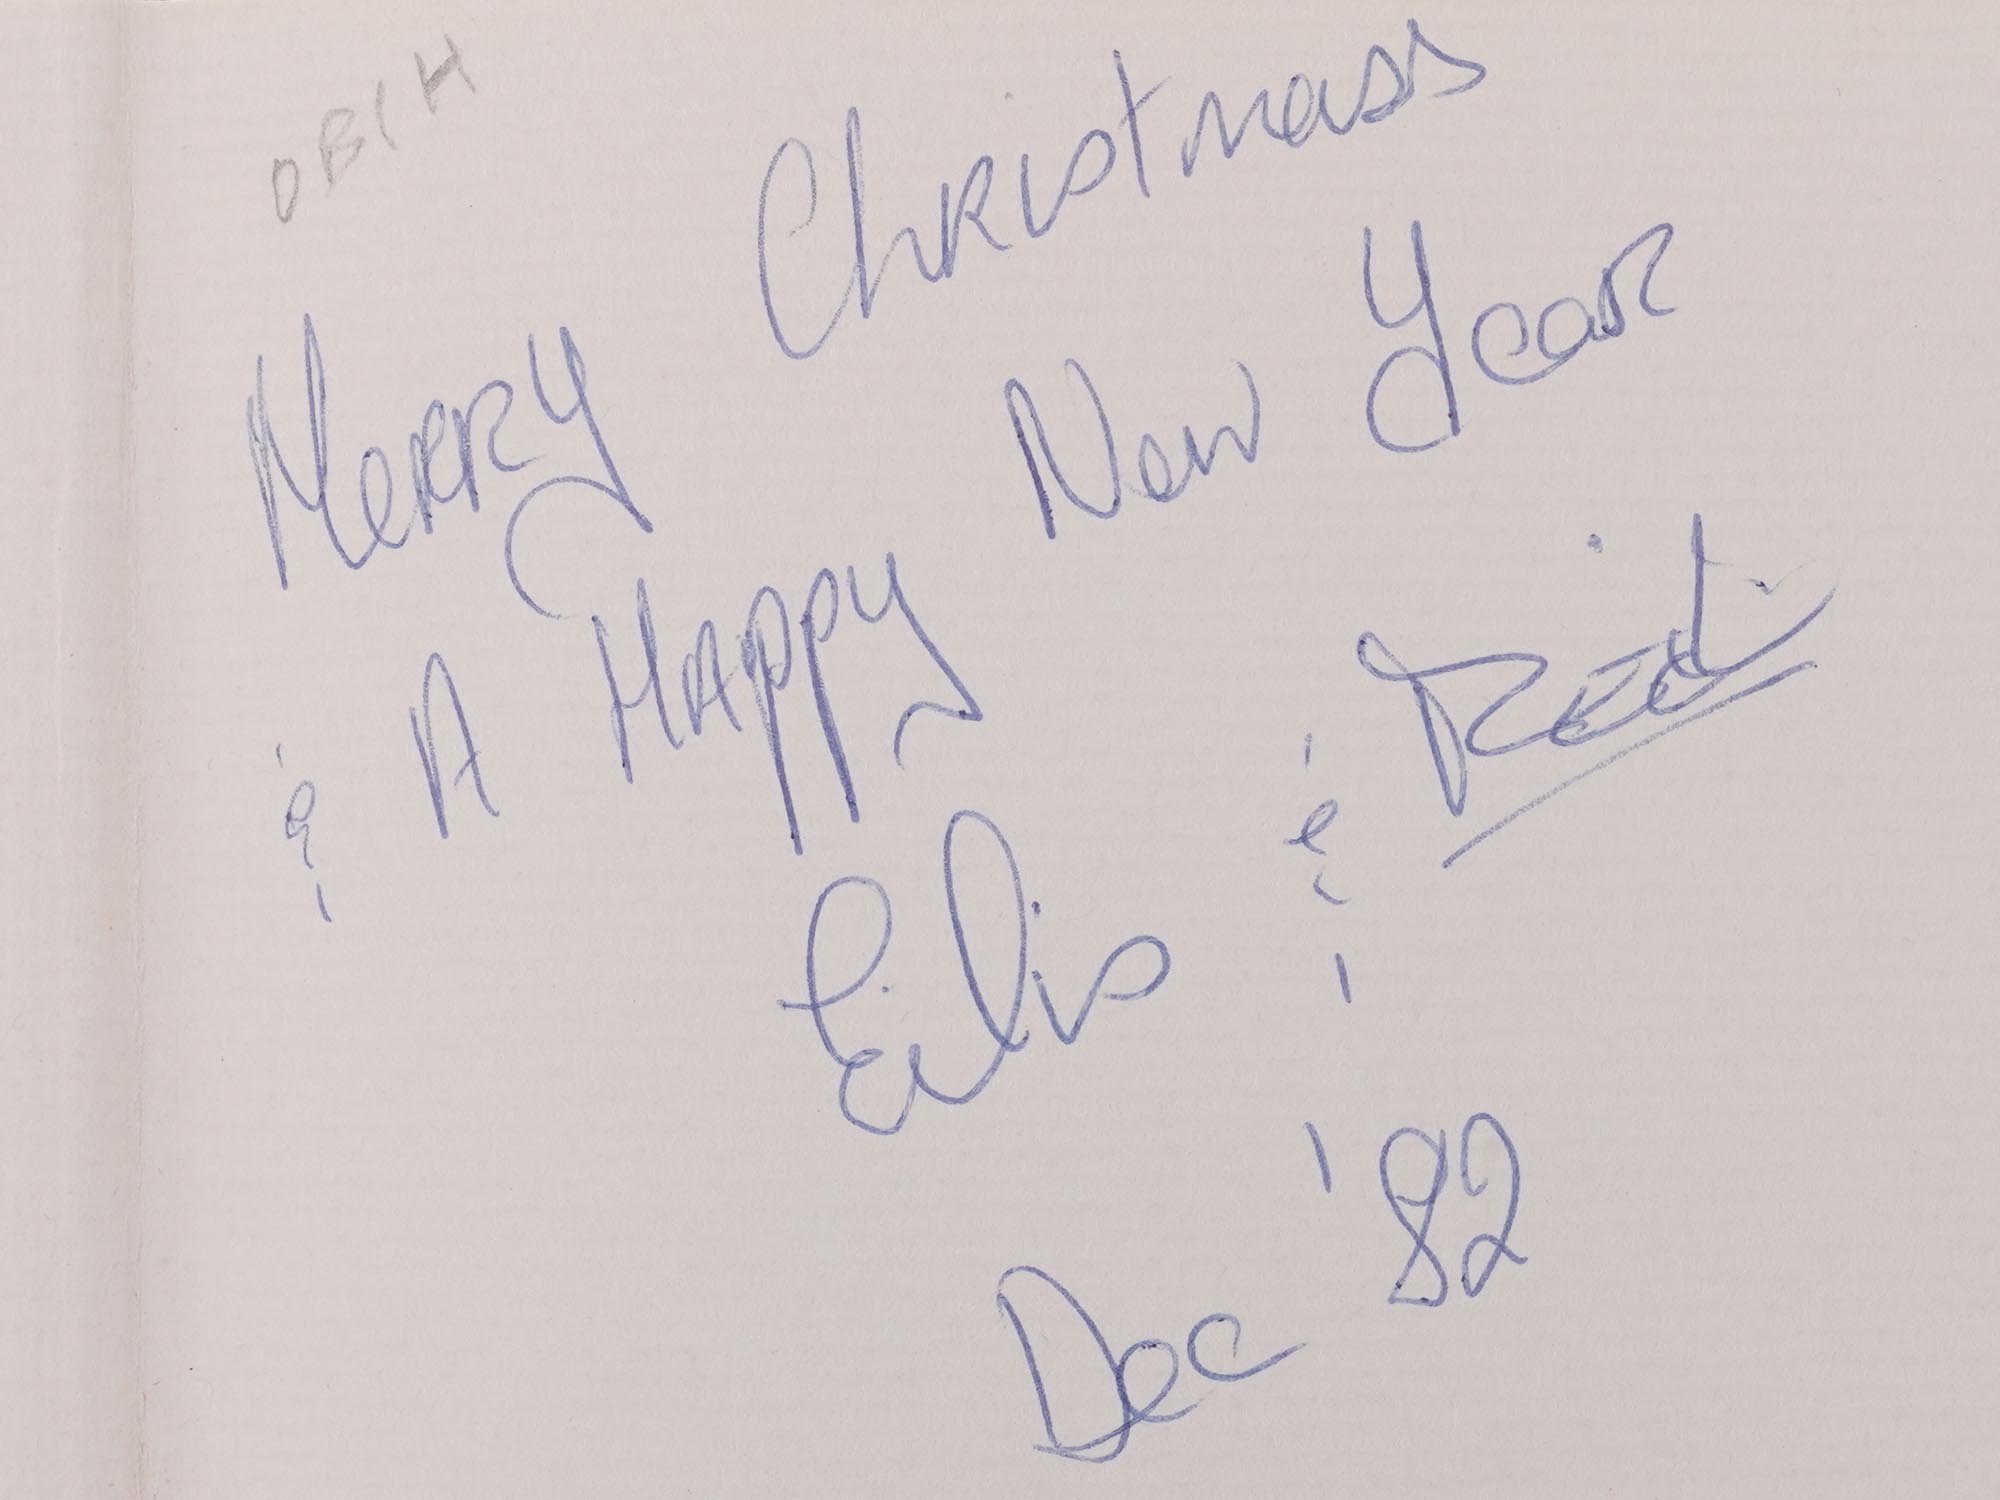 OBIH
Merry Christmass
& A Happy New Year
Eilis & Redi
Dec '82